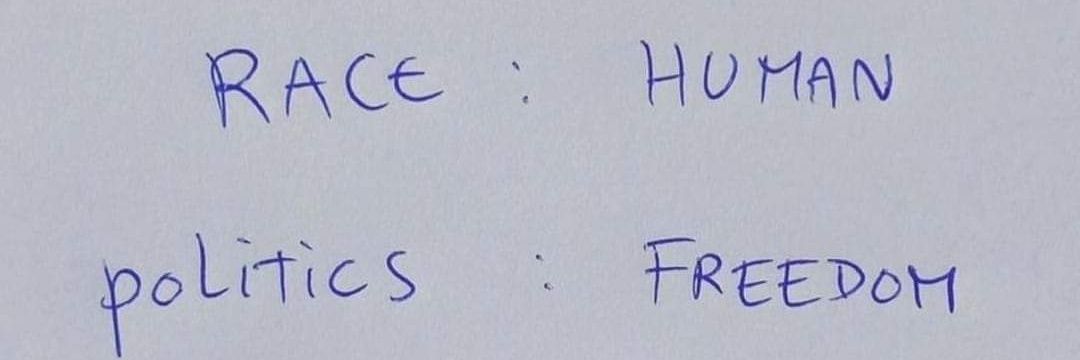 RACE : HUMAN
politics : FREEDOM